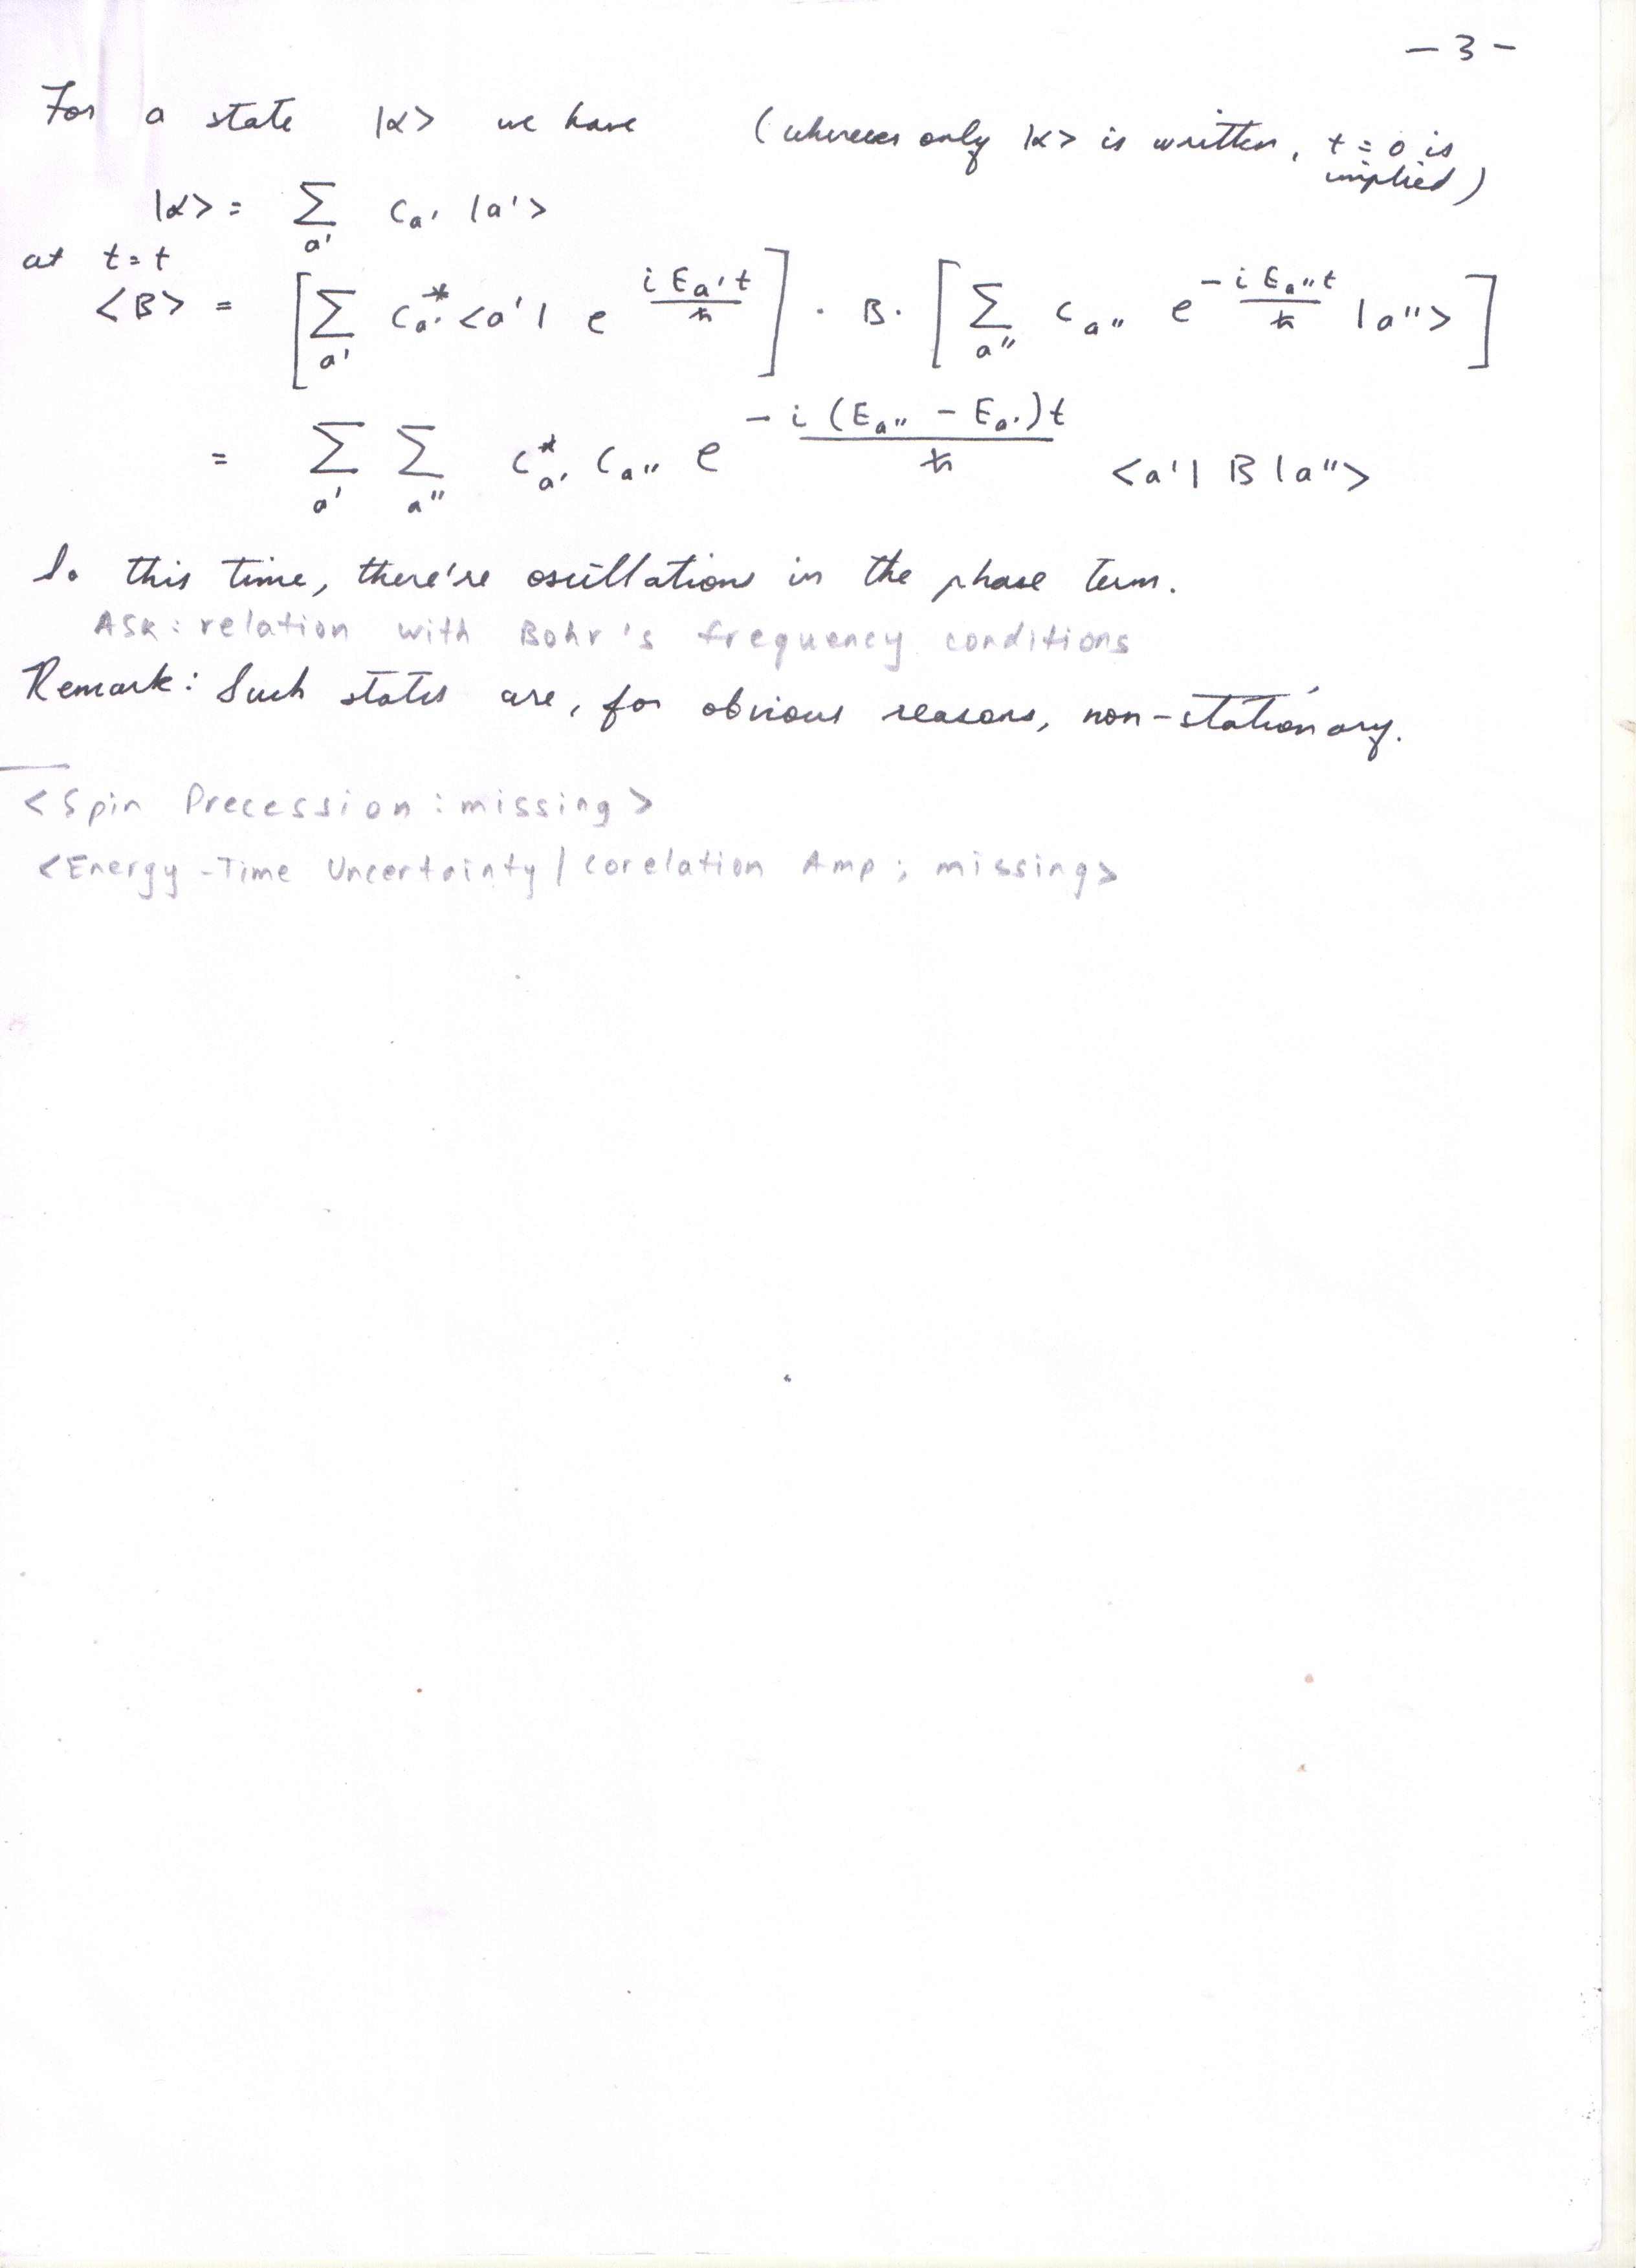 - 3 -
For a state |α> we have (whenever only |α> is written, t = 0 is
implied)
|α> = Σ_{a'} c_{a'} |a'>
at t=t
<B> = [Σ_{a'} c*_{a'} <a'| e^{iE_{a'}t/ħ}] . B . [Σ_{a''} c_{a''} e^{-iE_{a''}t/ħ} |a''>]
= Σ_{a'} Σ_{a''} c*_{a'} c_{a''} e^{-i(E_{a''} - E_{a'})t/ħ} <a'| B |a''>
So this time, there're oscillations in the phase term.
Ask: relation with Bohr's frequency conditions
Remark: Such states are, for obvious reasons, non-stationary.
<Spin Precession: missing>
<Energy-Time Uncertainty / Corelation Amp; missing>